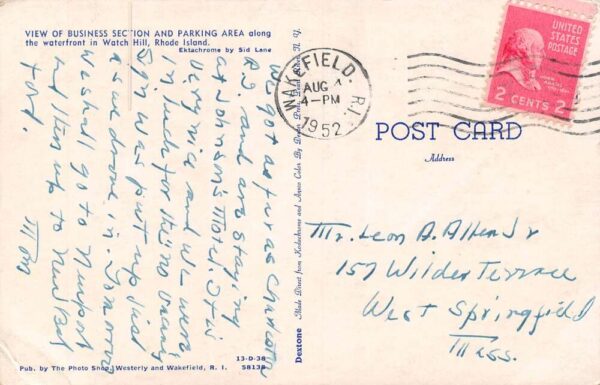 VIEW OF BUSINESS SECTION AND PARKING AREA along
the waterfront in Watch Hill, Rhode Island.
Ektachrome by Sid Lane
We got as far as Charlestown
R.I and are staying
at Johnson's Motel. It is
very nice and we were
in luck for the no vacancy
sign was put up just
as we drove in. Tomorrow
we shall go to Newport
and then up to New Bed
ford.
Mom
Pub. by The Photo Shop, Westerly and Wakefield, R. I.
13-0-38
58138
Dextone
Made Direct from Kodachrome and Ansco Color By Dexter Press, Pearl River, N. Y.
WAKEFIELD, R.I.
AUG 4
4-PM
1952
UNITED
STATES
POSTAGE
JOHN
ADAMS
2 CENTS 2
POST CARD
Address
Mr. Leon A. Allen Jr
157 Wilder Terrace
West Springfield
Mass.